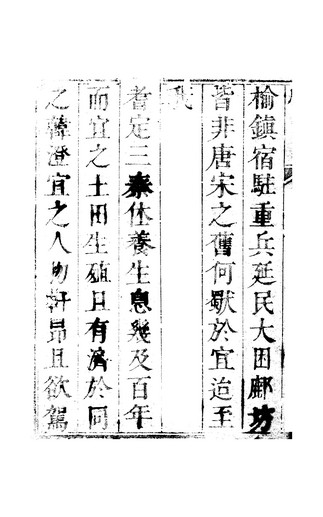 榆鎮宿駐重兵延民大困鄜坊
皆非唐宋之舊何獨於宜迨至
代
耆定三秦休養生息幾及百年
而宜之土田生殖且有濟於同
之韓澄宜之人物軒昂且欲駕